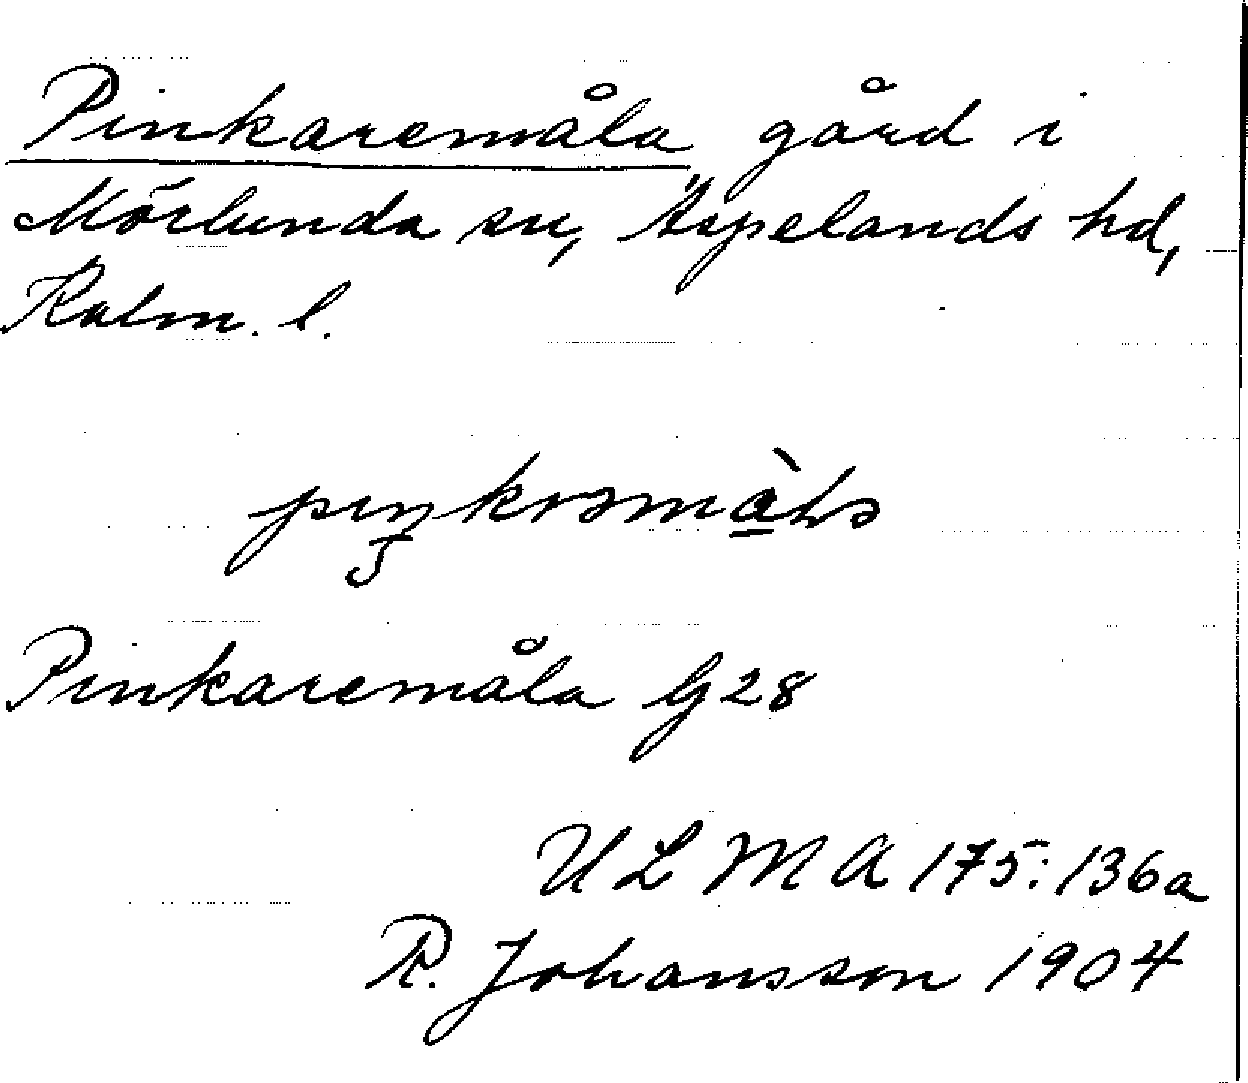 Pinkaremåla gård i
Mörlunda sn, Äspelands hd,
Kalm. l.
Pinkaremåla G 28
ULMA 175:136a
R. Johansson 1904